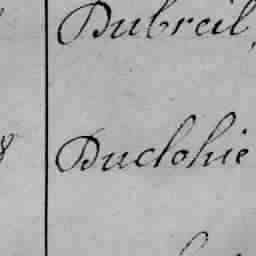 Dubreil,
8 Duclohie